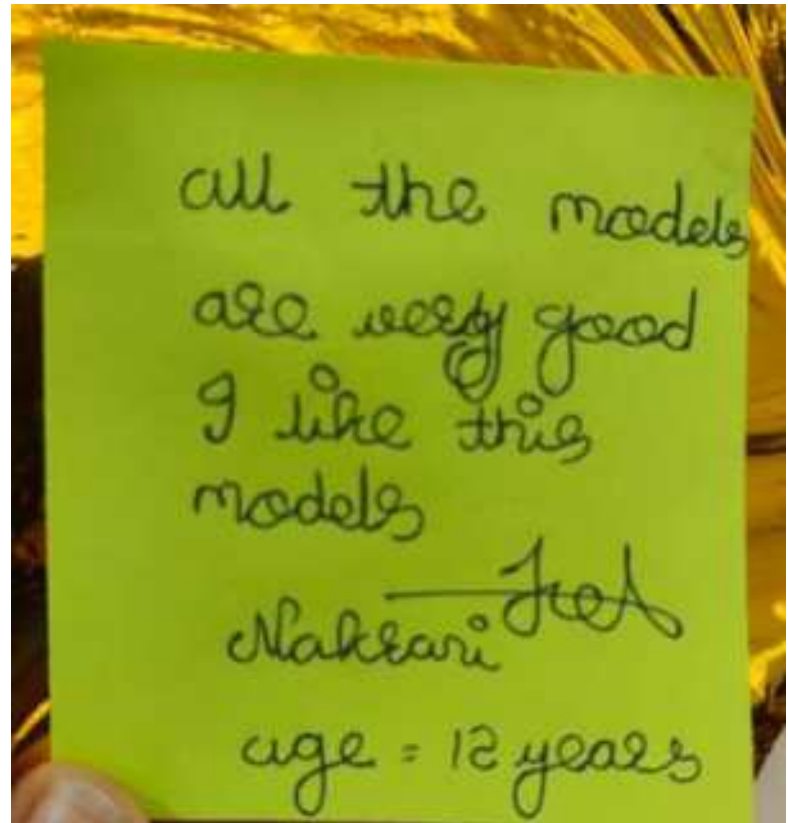 all the models
are very good
I like this
models
Nakrani
age = 12 years